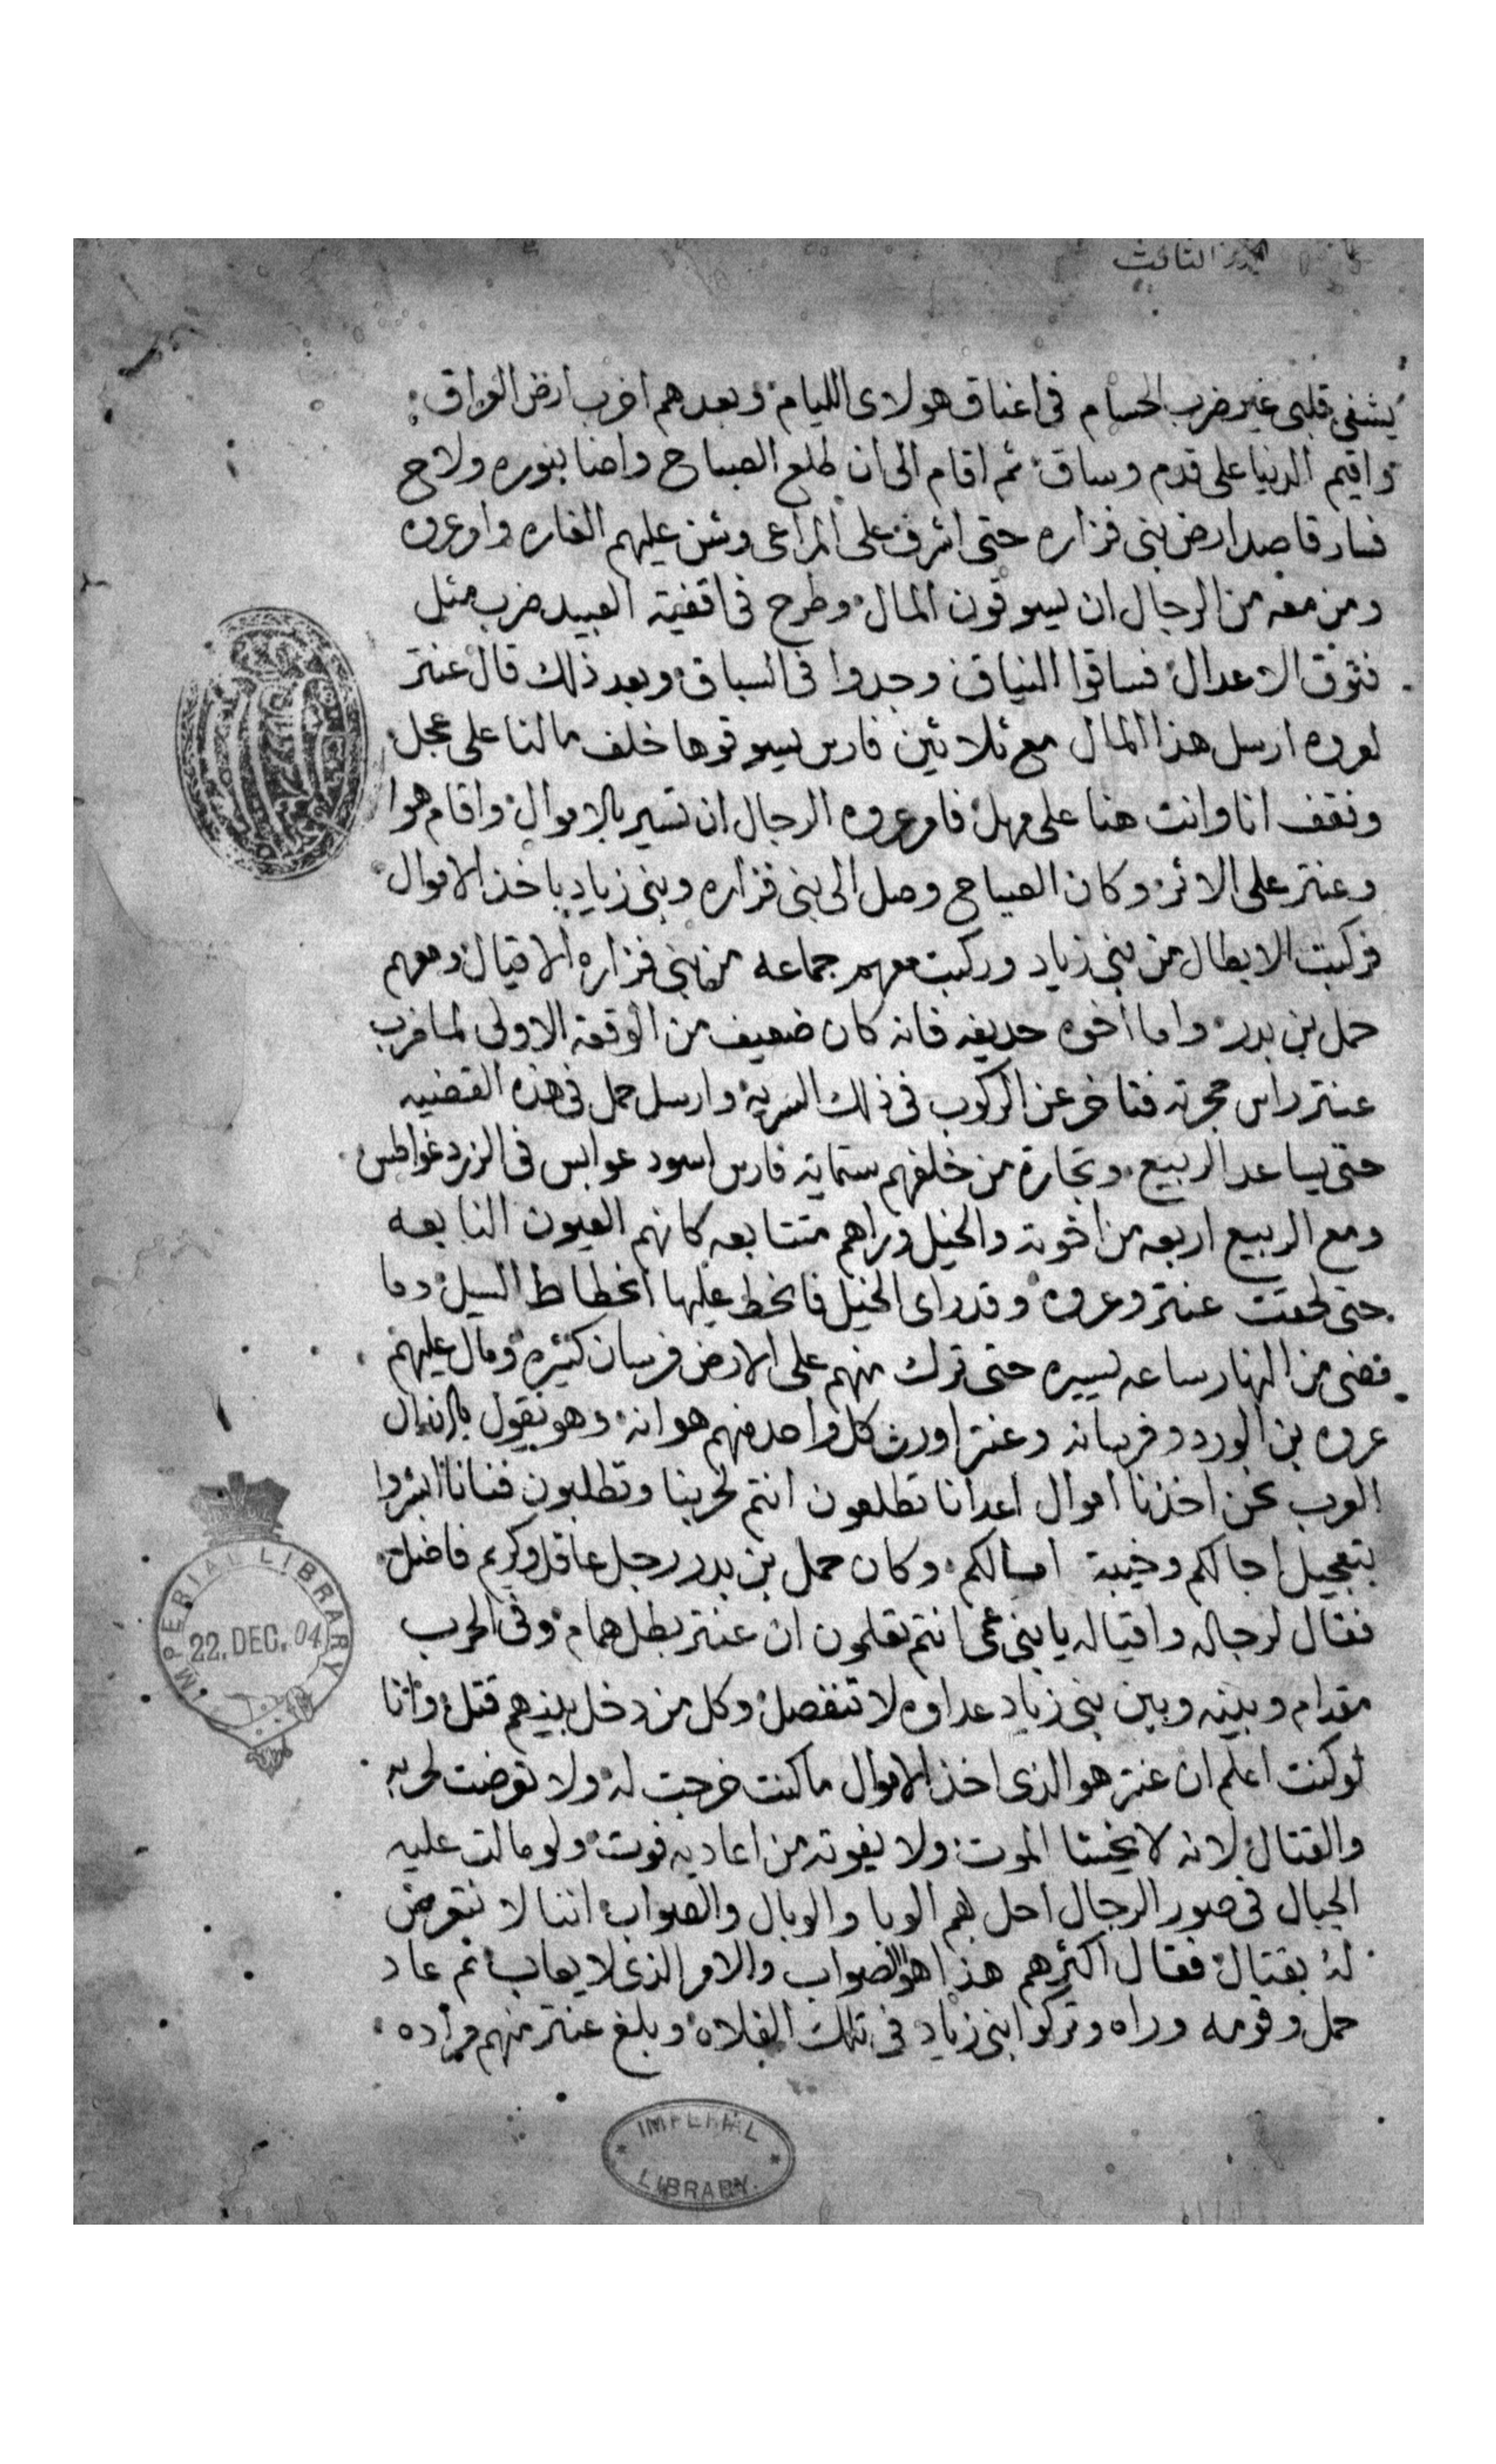 الثالث
يشفى قلبى غير ضرب الحسام فى اعناق هولاى الليام وبعدهم اخرب ارض العراق
واقيم الدنيا على قدم وساق ثم اقام الى ان طلع الصباح واضا بنوره ولاح
فسار قاصد ارض بنى فزاره حتى اشرف على المراعى وشن عليهم الغاره وامر عروه
ومن معه من الرجال ان يسوقون المال وطرح فى اقفية العبيد ضرب مثل
الاعدال فساقوا النياق وجدوا فى السياق وبعد ذلك قال عنتر
لعروه ارسل هذا المال مع ثلاثين فارس يسوقوها خلف مالنا على عجل
ونقف انا وانت هنا على مهل فامر عروه الرجال ان تسير بالاموال واقام هوا
وعنتر على الاثر وكان الصياح وصل الى بنى فزاره وبنى زياد باخذ الاموال
فركبت الابطال من بنى زياد وركبت معهم جماعه من بنى فزاره الاقيال ومعهم
حمل بن بدر واما اخوه حديفه فانه كان ضعيف من الوقعة الاولى لما ضرب
عنتر راس حجرته فتاخر عن الركوب فى ذلك السرية وارسل حمل فى هذه القضيه
حتى يساعد الربيع وتجارة من خلفهم ستماية فارس اسود عوابس فى الزرد غواطس
ومع الربيع اربعه من اخوته والخيل وراهم متتابعه كانهم العيون النابعه
حتى لحقت عنتر وعروه وقد راى الخيل فانحط عليها انحطاط السيل وما
مضى من النهار ساعه يسيره حتى ترك منهم على الارض فرسان كثيره ومال عليهم
عروه بن الورد وفرسانه وعنتر اورث كل واحد منهم هوانه وهو يقول يااندال
العرب نحن اخذنا اموال اعدانا تطلعون انتم لحربنا وتطلبون فنانا ابشروا
بتعجيل اجالكم وخيبة امالكم وكان حمل بن بدر رجل عاقل وكريم فاضل
فقال لرجاله واقياله يا بنى عمى انتم تعلمون ان عنتر بطل همام وفى الحرب
مقدام وبينه وبين بنى زياد عداوه لا تنفصل وكل من دخل بينهم قتل وانا
لو كنت اعلم ان عنتر هو الذى اخذ الاموال ما كنت خرجت له ولا تعرضت لحربه
والقتال لانه لا يخشا الموت ولا يفوته من اعاديه فوت ولو مالت عليه
الجبال فى صور الرجال احل بهم الوبا والوبال والصواب اننا لا نتعرض
له بقتال فقال اكثرهم هذا هو الصواب والامر الذى لا يعاب ثم عاد
حمل وقومه وراه وتركوا بنى زياد فى تلك الفلاه وبلغ عنتر منهم مراده
IMPERIAL LIBRARY
22. DEC. 04
IMPERIAL
LIBRARY.